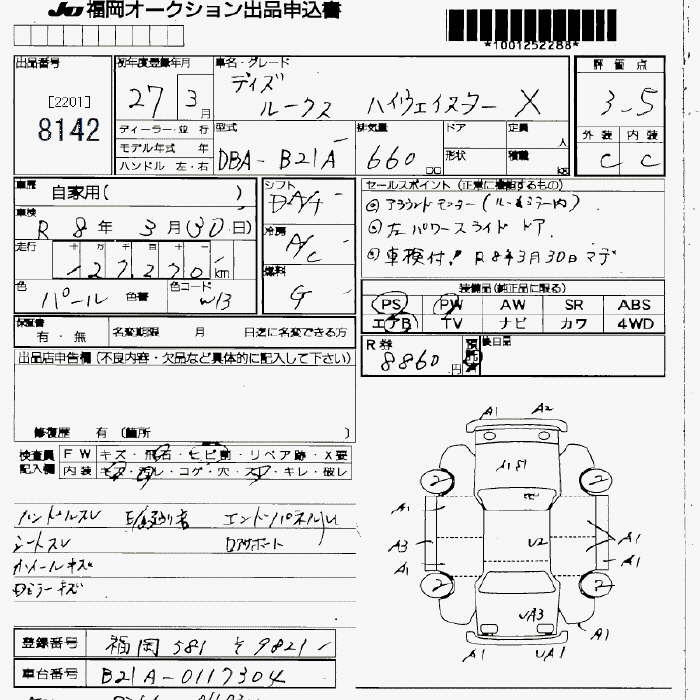 JU 福岡オークション出品申込書
*1001252288*
出品番号
[2201]
8142
初年度登録年月
27 3月
車名・グレード
デイズ
ルークス ハイウェイスター X
評価点
3.5
外装 内装
C C
ディーラー・並行
モデル年式 年
ハンドル 左・右
型式
DBA-B21A
排気量
660 cc
ドア
形状
定員 人
積載 kg
車歴 自家用( )
車検
R 8年 3月(30日)
走行 十 万 千 百 十
127270 km
色 パール 色替
色コード W13
シフト
D A/T
冷房
A/C
燃料
G
セールスポイント (正常に機能するもの)
左パワースライドドア.
車検付! R8年3月30日マデ
装備品(純正品に限る)
PS PW AW SR ABS
エアB TV ナビ カワ 4WD
保証書
有・無
名変期限 月 日迄に名変できる方
R券
8860.円
預託済
後日品
出品店申告欄(不良内容・欠品など具体的に記入して下さい)
修復歴 有 (箇所 )
検査員記入欄
FW キズ・飛石・ヒビ割・リペア跡・X要
内装 キズ・汚レ・コゲ・穴・スレ・キレ・破レ
ハンドルスレ
エンドパネル
シートスレ
ロアサポート
ホイールキズ
ドアミラーキズ
A1 A2
2 2
A1
A3 U2 A1
A1 A1
2 2
UA3
A1 UA1 A1
登録番号 福岡 581 そ 9821
車台番号 B21A-0117304